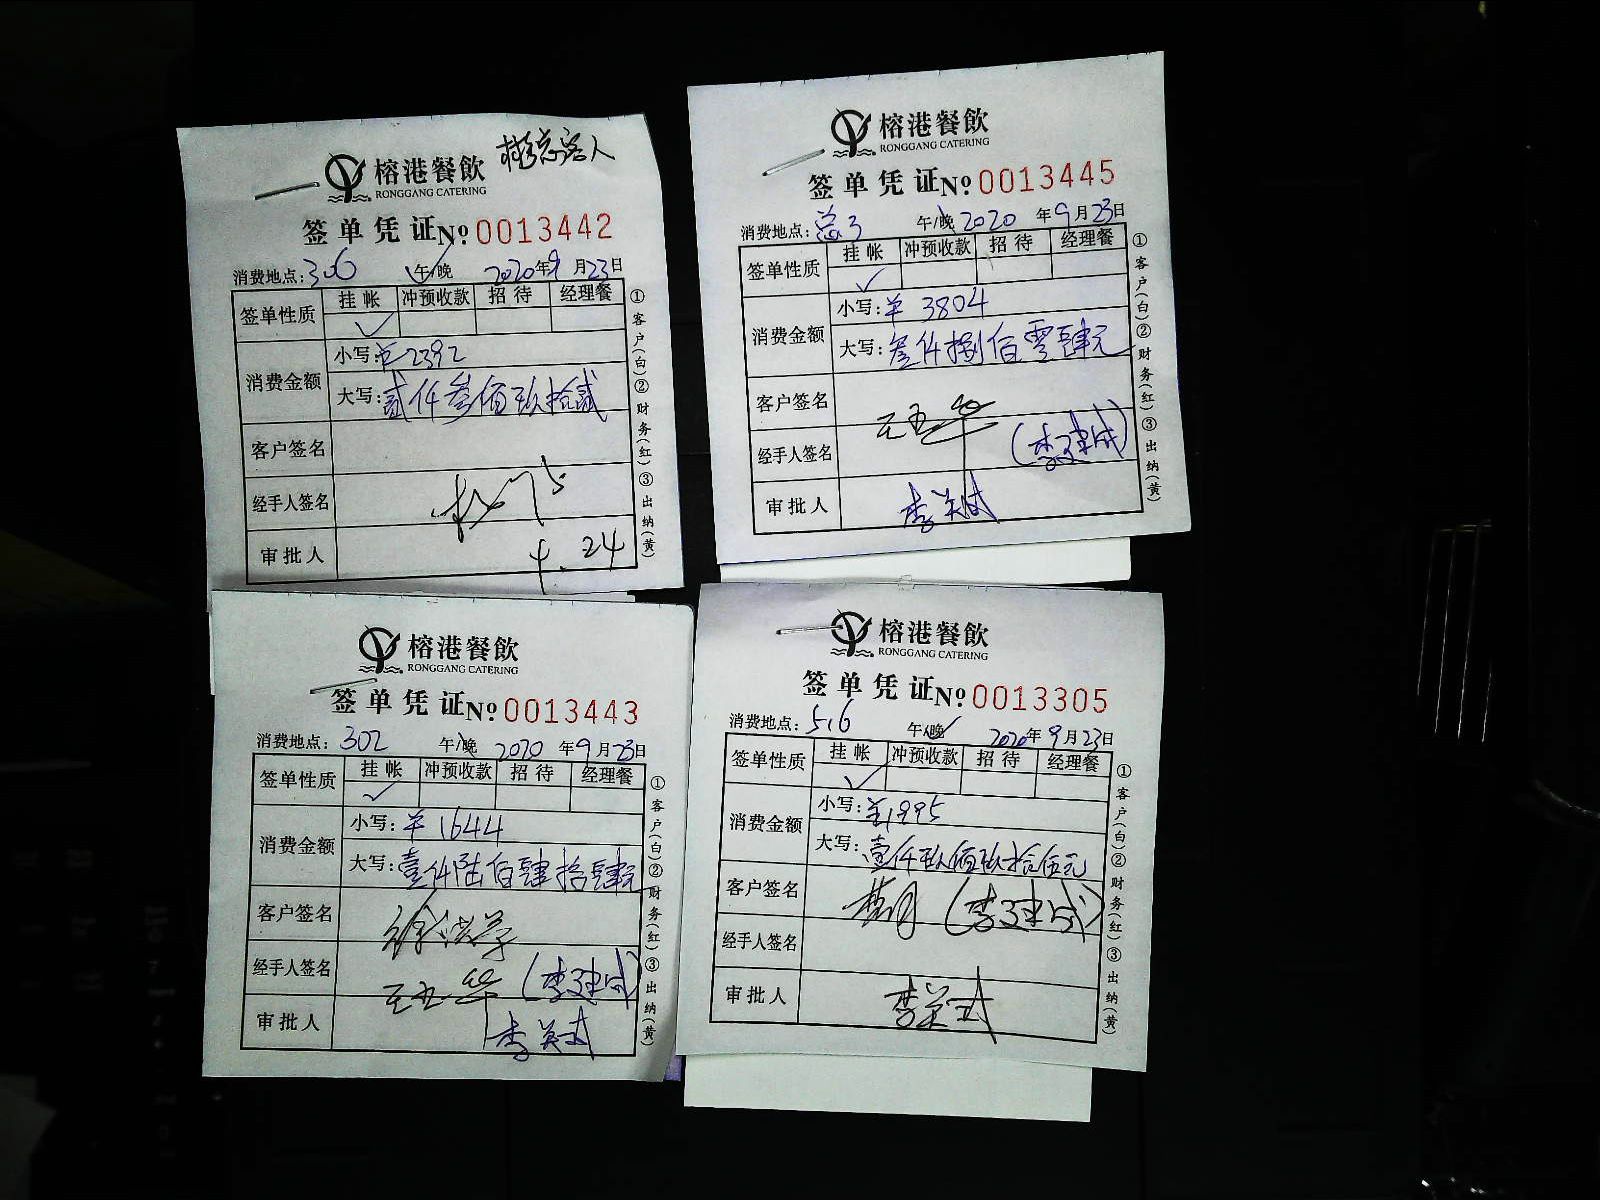 榕港餐飲
RONGGANG CATERING
签单凭证 № 0013442
消费地点: 306 午/晚 2020年9月23日
签单性质 挂帐 冲预收款 招待 经理餐
✓
消费金额 小写: ¥2392
大写: 贰仟叁佰玖拾贰
客户签名
经手人签名
审批人
24
①客户(白)②财务(红)③出纳(黄)
榕港餐飲
RONGGANG CATERING
签单凭证 № 0013445
消费地点: 总3 午/晚 2020年9月23日
签单性质 挂帐 冲预收款 招待 经理餐
✓
消费金额 小写: ¥3804
大写: 叁仟捌佰零肆元
客户签名
经手人签名 (李建成)
审批人
①客户(白)②财务(红)③出纳(黄)
榕港餐飲
RONGGANG CATERING
签单凭证 № 0013443
消费地点: 302 午/晚 2020年9月23日
签单性质 挂帐 冲预收款 招待 经理餐
✓
消费金额 小写: ¥1644
大写: 壹仟陆佰肆拾肆元
客户签名
经手人签名 (李建成)
审批人
①客户(白)②财务(红)③出纳(黄)
榕港餐飲
RONGGANG CATERING
签单凭证 № 0013305
消费地点: 516 午/晚 2020年9月23日
签单性质 挂帐 冲预收款 招待 经理餐
✓
消费金额 小写: ¥1995
大写: 壹仟玖佰玖拾伍元
客户签名 (李建成)
经手人签名
审批人
①客户(白)②财务(红)③出纳(黄)